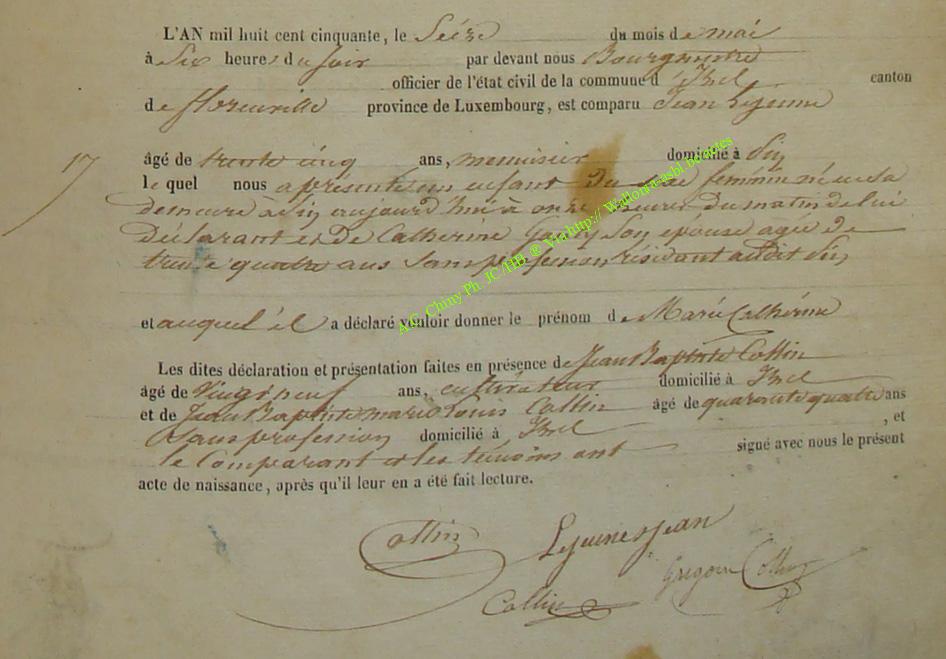 L'AN mil huit cent cinquante, le Seize du mois de mai
à Six heures du soir par devant nous Bourgmestre
officier de l'état civil de la commune d' Izel canton
de florenville province de Luxembourg, est comparu Jean Lejeune
17
âgé de trente cinq ans, menuisier domicilié à Pin
le quel nous a présenté un enfant du sexe feminin né en sa
demeure à Pin aujourd'hui à onze heures du matin de lui
Déclarant et de Catherine son épouse agée de
trente quatre ans Sans profession résidant audit Pin
et auquel il a déclaré vouloir donner le prénom de Marie Catherine
Les dites déclaration et présentation faites en présence de Jean Baptiste Collin
âgé de Vingt neuf ans, cultivateur domicilié à Izel
et de Jean Baptiste marie Louis Collin âgé de quarante quatre ans
Sans profession domicilié à Izel , et
le Comparant et les témoins ont signé avec nous le présent
acte de naissance, après qu'il leur en a été fait lecture.
Collin Lejeune Jean
Collin Gregoire Collin
A.G. Chiny Ph JC/HB @ Via http:// Wallonia asbl